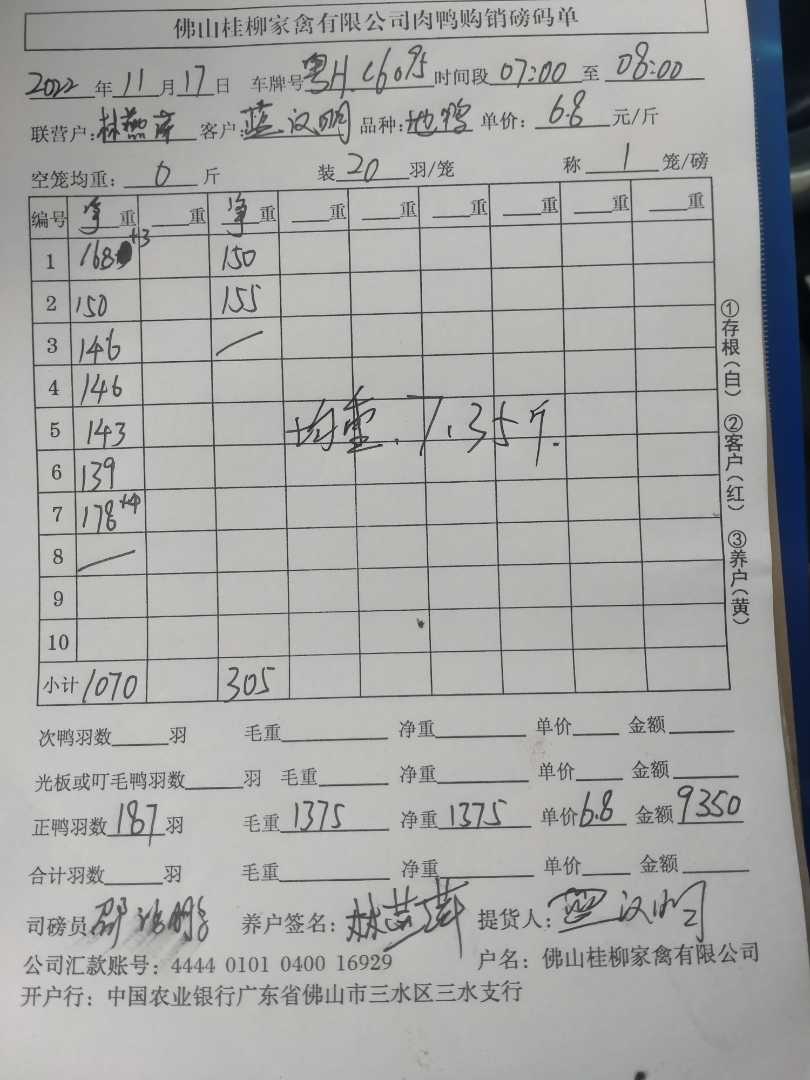 佛山桂柳家禽有限公司肉鸭购销磅码单
2022年11月17日 车牌号粤H.C6095时间段07:00至08:00
联营户: 客户:蓝汉明 品种: 单价:6.8元/斤
空笼均重:0斤 装20羽/笼 称1笼/磅
编号 净重 重 净重 重 重 重 重 重 重
1 168+3 150
2 150 155
3 146
4 146
5 143
均重.7.35斤.
6 139
7 178+4
8
9
10
小计 1070 305
次鸭羽数 羽 毛重 净重 单价 金额
光板或叮毛鸭羽数 羽 毛重 净重 单价 金额
正鸭羽数187羽 毛重1375 净重1375 单价6.8 金额9350
合计羽数 羽 毛重 净重 单价 金额
司磅员 养户签名: 提货人:蓝汉明
公司汇款账号:4444 0101 0400 16929 户名:佛山桂柳家禽有限公司
开户行:中国农业银行广东省佛山市三水区三水支行
①存根(白) ②客户(红) ③养户(黄)